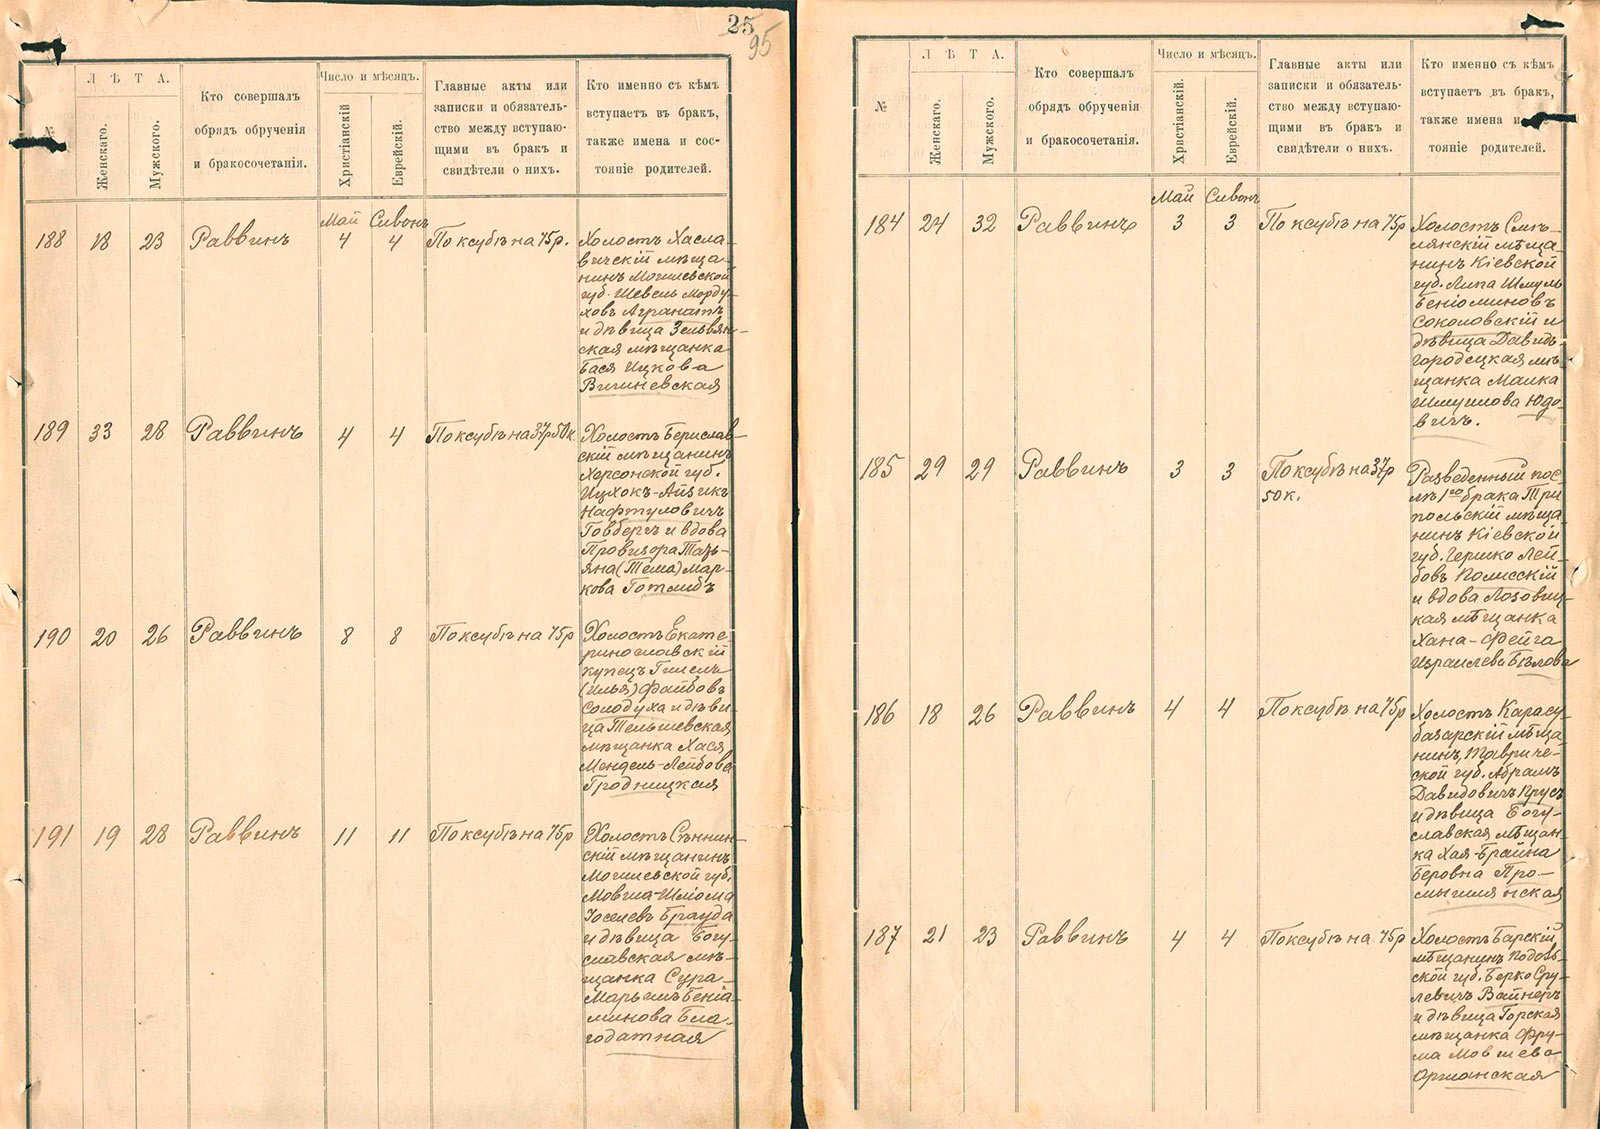 25
95
№
ЛѢТА.
Женскаго.
Мужского.
Кто совершалъ
обрядъ обрученія
и бракосочетанія.
Число и мѣсяцъ.
Христіанскій
Еврейскій.
Главные акты или
записки и обязатель-
ство между вступаю-
щими въ бракъ и
свидѣтели о нихъ.
Кто именно съ кѣмъ
вступаетъ въ бракъ,
также имена и сос-
тояніе родителей.
Май Сивонъ
188 18 23 Раввинъ 4 4 По ксубѣ на 75р.
Холостъ Хасла-
вичскій мѣща-
нинъ Могилевской
губ. Шевель Морду-
ховъ Агранатъ
и дѣвица Зельвян-
ская мѣщанка
Бася Ицкова
Вишневская
189 33 28 Раввинъ 4 4 По ксубѣ на 37р 50к.
Холостъ Бериславъ-
скій мѣщанинъ
Херсонской губ.
Ицхокъ-Айзикъ
Нафтуловичъ
Говбергъ и вдова
Провизора Тать-
яна (Тема) Мар-
кова Готлибъ
190 20 26 Раввинъ 8 8 По ксубѣ на 75р
Холостъ Екате-
ринославскій
купецъ Гилель
(Илья) Файбовъ
Солодуха и дѣви-
ца Тельшевская
мѣщанка Хася
Мендель-Лейбова
Гродницкая
191 19 28 Раввинъ 11 11 По ксубѣ на 75р
Холостъ Сѣннин-
скій мѣщанинъ
Могилевской губ.
Мовша-Шліома
Іоселевъ Брауда
и дѣвица Богу-
славская мѣ-
щанка Сура-
Марьемъ Беніа-
минова Бла-
годатная
№
ЛѢТА.
Женскаго.
Мужского.
Кто совершалъ
обрядъ обрученія
и бракосочетанія.
Число и мѣсяцъ.
Христіанскій.
Еврейскій.
Главные акты или
записки и обязатель-
ство между вступаю-
щими въ бракъ и
свидѣтели о нихъ.
Кто именно съ кѣмъ
вступаетъ въ бракъ,
также имена и
тояніе родителей.
Май Сивонъ
184 24 32 Раввинъ 3 3 По ксубѣ на 75р
Холостъ Смѣ-
лянскій мѣща-
нинъ Кіевской
губ. Липа Шмуль
Беніоминовъ
Соколовскій и
дѣвица Давидъ-
городецкая мѣ-
щанка Малка
Шмуилова Юдо-
вичъ.
185 29 29 Раввинъ 3 3 По ксубѣ на 37р
50к.
Разведенный пос-
лѣ 1го брака Три
польскій мѣща
нинъ Кіевской
губ. Гершко Лей-
бовъ Полисскій
и вдова Лозовиц-
кая мѣщанка
Хана-Фейга
Израилева Бѣлова
186 18 26 Раввинъ 4 4 По ксубѣ на 75р
Холостъ Карасу-
базарскій мѣща
нинъ, Тавриче-
ской губ. Абрамъ
Давидовичъ Крусъ
и дѣвица Богу-
славская мѣщан-
ка Хая-Брайна
Беровна Про-
мышлянская
187 21 23 Раввинъ 4 4 По ксубѣ на 75р
Холостъ Барскій
мѣщанинъ Подоль-
ской губ. Берко Сру-
левичъ Вайнеръ
и дѣвица Горская
мѣщанка Фру-
ма Мовшева
Оршанская